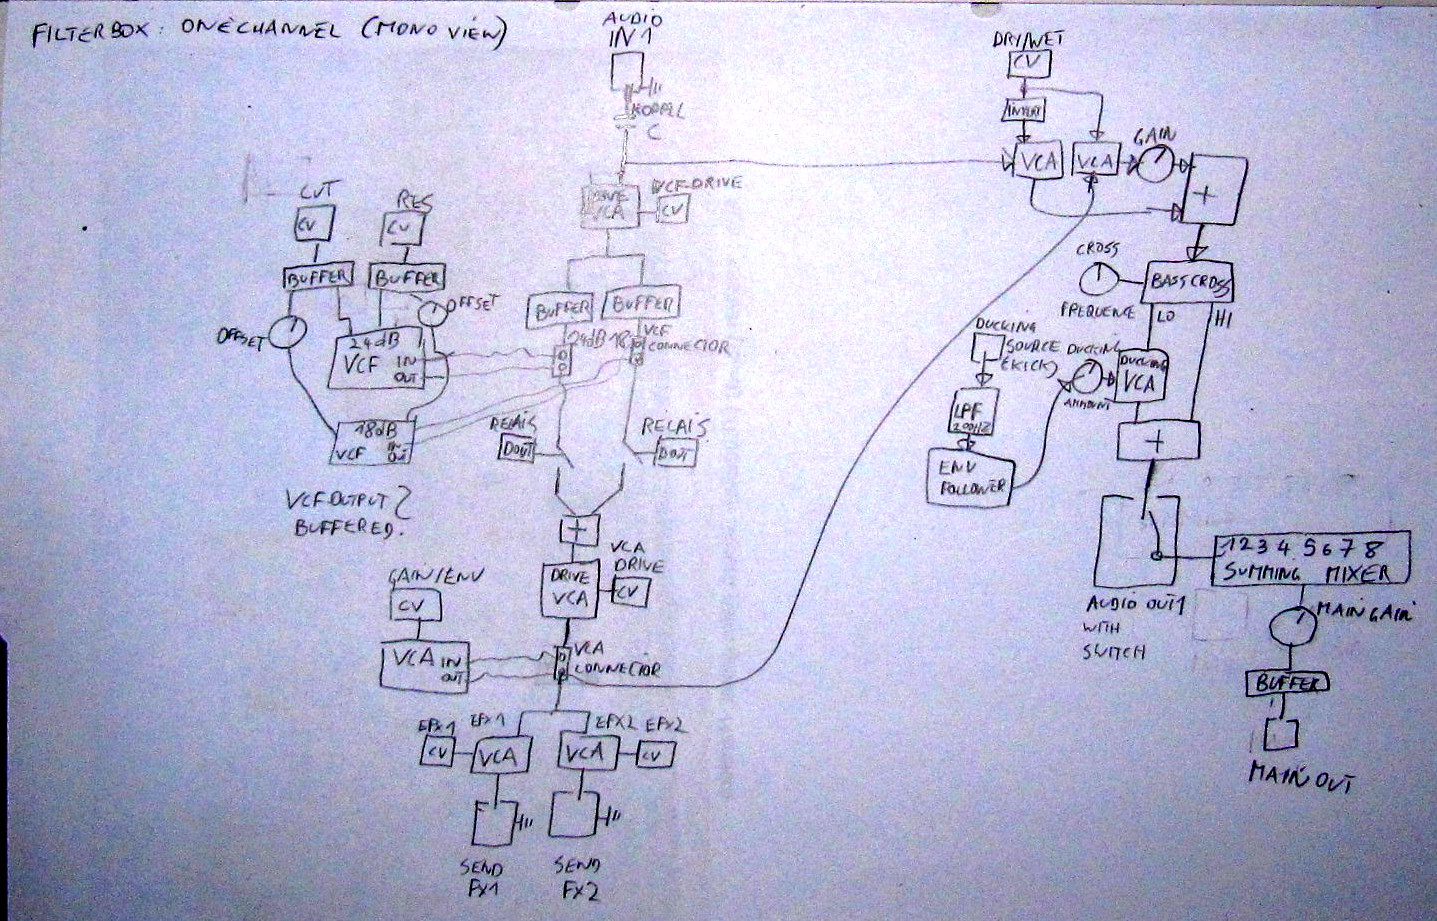 FILTERBOX: ONE CHANNEL (MONO VIEW)
AUDIO
IN 1
KOPPEL
C
DRIVE
VCA
VCF-DRIVE
CV
CUT
CV
RES
CV
BUFFER
BUFFER
OFFSET
OFFSET
24dB
VCF IN
OUT
18dB
VCF IN
OUT
VCF OUTPUT
BUFFERED?
BUFFER
BUFFER
24dB 18
VCF
CONNECTOR
RELAIS
DOUT
RELAIS
DOUT
+
VCA
DRIVE
DRIVE
VCA
CV
GAIN/ENV
CV
VCA IN
OUT
VCA
CONNECTOR
EFX1
EFX1
CV
VCA
EFX2
EFX2
VCA
CV
SEND
FX1
SEND
FX2
DRY/WET
CV
INVERT
VCA
VCA
GAIN
+
CROSS
FREQUENCE
BASSCROSS
LO
HI
DUCKING
SOURCE
(KICK)
DUCKING
AMOUNT
DUCKING
VCA
LPF
200HZ
ENV
FOLLOWER
+
AUDIO OUT1
WITH
SWITCH
1 2 3 4 5 6 7 8
SUMMING MIXER
MAIN GAIN
BUFFER
MAIN OUT